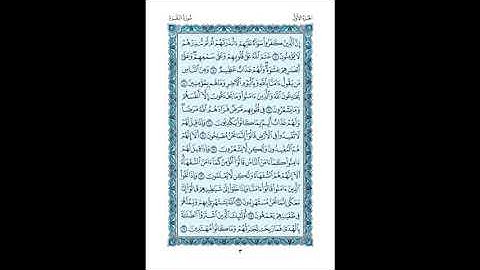 الجزء الأول
سورة البقرة
إِنَّ ٱلَّذِينَ كَفَرُوا۟ سَوَآءٌ عَلَيْهِمْ ءَأَنذَرْتَهُمْ أَمْ لَمْ تُنذِرْهُمْ
لَا يُؤْمِنُونَ ٦ خَتَمَ ٱللَّهُ عَلَىٰ قُلُوبِهِمْ وَعَلَىٰ سَمْعِهِمْ وَعَلَىٰٓ
أَبْصَٰرِهِمْ غِشَٰوَةٌ وَلَهُمْ عَذَابٌ عَظِيمٌ ٧ وَمِنَ ٱلنَّاسِ
مَن يَقُولُ ءَامَنَّا بِٱللَّهِ وَبِٱلْيَوْمِ ٱلْءَاخِرِ وَمَا هُم بِمُؤْمِنِينَ ٨
يُخَٰدِعُونَ ٱللَّهَ وَٱلَّذِينَ ءَامَنُوا۟ وَمَا يَخْدَعُونَ إِلَّآ أَنفُسَهُمْ
وَمَا يَشْعُرُونَ ٩ فِى قُلُوبِهِم مَّرَضٌ فَزَادَهُمُ ٱللَّهُ مَرَضًا
وَلَهُمْ عَذَابٌ أَلِيمٌۢ بِمَا كَانُوا۟ يَكْذِبُونَ ١٠ وَإِذَا قِيلَ لَهُمْ
لَا تُفْسِدُوا۟ فِى ٱلْأَرْضِ قَالُوٓا۟ إِنَّمَا نَحْنُ مُصْلِحُونَ ١١ أَلَآ إِنَّهُمْ
هُمُ ٱلْمُفْسِدُونَ وَلَٰكِن لَّا يَشْعُرُونَ ١٢ وَإِذَا قِيلَ لَهُمْ
ءَامِنُوا۟ كَمَآ ءَامَنَ ٱلنَّاسُ قَالُوٓا۟ أَنُؤْمِنُ كَمَآ ءَامَنَ ٱلسُّفَهَآءُ
أَلَآ إِنَّهُمْ هُمُ ٱلسُّفَهَآءُ وَلَٰكِن لَّا يَعْلَمُونَ ١٣ وَإِذَا لَقُوا۟
ٱلَّذِينَ ءَامَنُوا۟ قَالُوٓا۟ ءَامَنَّا وَإِذَا خَلَوْا۟ إِلَىٰ شَيَٰطِينِهِمْ قَالُوٓا۟ إِنَّا
مَعَكُمْ إِنَّمَا نَحْنُ مُسْتَهْزِءُونَ ١٤ ٱللَّهُ يَسْتَهْزِئُ بِهِمْ وَيَمُدُّهُمْ
فِى طُغْيَٰنِهِمْ يَعْمَهُونَ ١٥ أُو۟لَٰٓئِكَ ٱلَّذِينَ ٱشْتَرَوُا۟ ٱلضَّلَٰلَةَ
بِٱلْهُدَىٰ فَمَا رَبِحَت تِّجَٰرَتُهُمْ وَمَا كَانُوا۟ مُهْتَدِينَ ١٦
٣